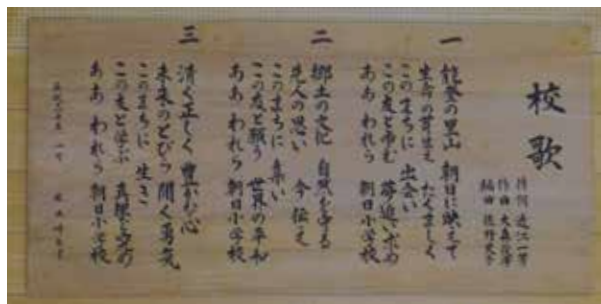 校歌
作詞
作曲
編曲
一
能登の里山 朝日に映えて
生命の芽生え たくましく
このまちに 出会い
この友と歩む 夢追い
ああ われら 朝日小学校
二
郷土の文化 自然を守る
先人の思い 今 伝え
このまちに 集い
この友と願う 世界の平和
ああ われら 朝日小学校
三
清く正しく 豊かな心
未来のとびら 開く勇気
このまちに 生き
この友と学ぶ 真理を求め
ああ われら 朝日小学校